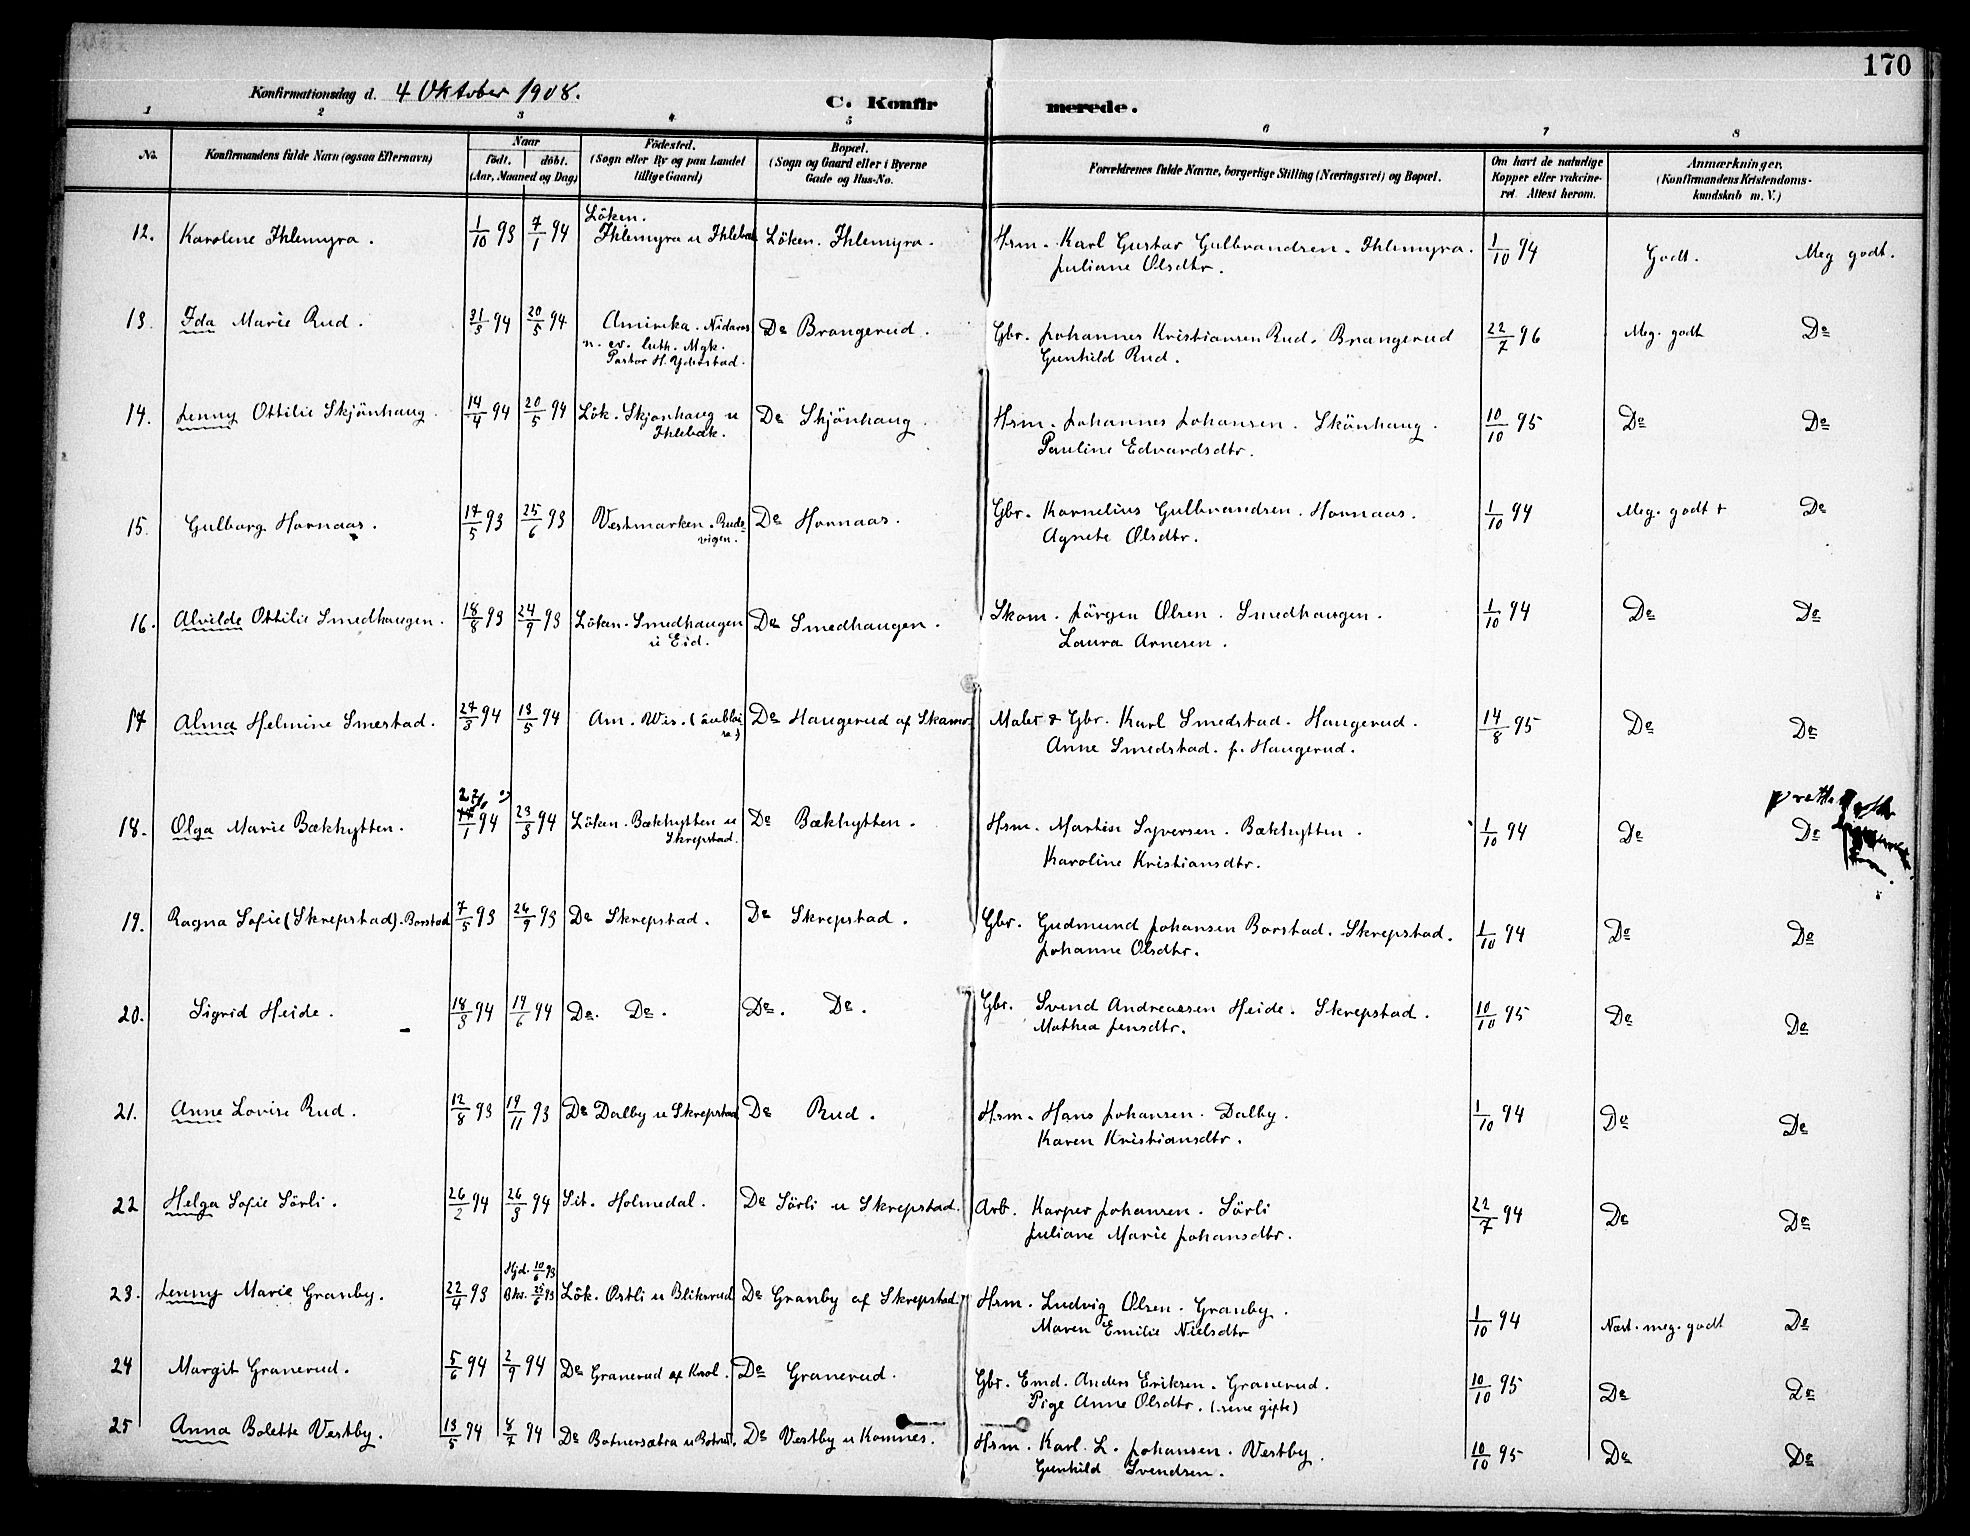 170
Konfirmationsdag d. 4 Oktober 1908.
C. Konfirmerede.
1 2 3 4 5 6 7 8
No. Konfirmandens fulde Navn (ogsaa Efternavn) Naar født. døbt. (Aar, Maaned og Dag) Fødested. (Sogn eller By og paa Landet tillige Gaard) Bopæl. (Sogn og Gaard eller i Byerne Gade og Hus-No. Forældrenes fulde Navne, borgerlige Stilling (Næringsvei) og Bopæl. Om havt de naturlige Kopper eller vakcineret. Attest herom. Anmærkninger. (Konfirmandens Kristendomskundskab m. V.)
12. Karolene Ihlemyra. 1/10 93 7/1 94 Löken. Ihlemyra u Ihlebæk Löken. Ihlemyra. Hsm. Karl Gustav Gulbrandsen. Ihlemyra. 1/10 94 Godt. Meg godt.
Juliane Olsdtr.
13. Ida Marie Rud. 31/3 94 20/5 94 Amirika. Nidaros Do Brangerud. Gbr. Johannes Kristiansen Rud. Brangerud 22/7 96 Meg. godt Do
n. ev. luth. Mgk.
Pastor H. Yderstad.
Gunhild Rud.
14. Jenny Ottilie Skjönhaug. 14/4 94 20/5 94 Lök. Skjönhaug u Ihlebæk. Do Skjönhaug. Hsm. Johannes Johansen. Skönhaug. 10/10 95 Do Do
Pauline Edvardsdtr.
15. Gulborg Hornaas. 17/5 93 25/6 93 Vestmarken. Rudsvigen. Do Hornaas. Gbr. Kornelius Gulbrandsen. Hornaas. 1/10 94 Meg. godt + Do
Agnete Olsdtr.
16. Alvilde Ottilie Smedhaugen. 18/8 93 24/9 93 Löken. Smedhaugen u Eid. Do Smedhaugen. Skom. Jörgen Olsen. Smedhaugen. 1/10 94 Do Do
Laura Arnesen.
17 Alma Helmine Smestad. 27/3 94 13/5 94 Am. Wis. Do Haugerud af Skamr. Maler & Gbr. Karl Smedstad. Haugerud. 14/8 95 Do Do
Anne Smedstad. f. Haugerud.
18. Olga Marie Bækhytten. /1 94 23/3 94 Löken. Bækhytten u Skrepstad. Do Bækhytten. Hsm. Martin Syversen. Bækhytten. 1/10 94 Do Do
Karoline Kristiansdtr.
19. Ragna Sofie (Skrepstad). Borstad 7/5 93 24/9 93 Do Skrepstad. Do Skrepstad. Gbr. Gudmund Johansen Borstad. Skrepstad. 1/10 94 Do Do
Johanne Olsdtr.
20. Sigrid Heide. 18/3 94 17/6 94 Do. Do. Do. Do. Gbr. Svend Andreassen Heide. Skrepstad. 10/10 95 Do Do
Mathea Jensdtr.
21. Anne Lovise Rud. 12/8 93 19/11 93 Do Dalby u Skrepstad Do Rud. Hsm. Hans Johansen. Dalby. 1/10 94 Do Do
Karen Kristiansdtr.
22 Helga Sofie Sörli. 26/2 94 26/3 94 Sit. Holmedal. Do Sörli u Skrepstad. Arb. Kasper Johansen. Sörli 22/7 94 Do Do
Juliane Marie Johansdtr.
23. Jenny Marie Granby. 22/4 93 Hjd. 10/6 93 Bkr. 25/6 93 Lök. Ostli u Bliksrud Do Granby af Skrepstad. Hsm. Ludvig Olsen. Granby. 1/10 94 Næst. meg. godt Do
Maren Emilie Nielsdtr
24 Margit Granerud. 5/6 94 2/9 94 Do Granerud af Krol. Do Granerud. Gbr. Emd. Anders Eriksen. Granerud. 10/10 95 Do Do
Pige Anne Olsdtr. (sene gifte)
25 Anna Bolette Vestby. 13/5 94 8/7 94 Do Botnersætra u Botner. Do Vestby u Komnes. Hsm. Karl. L. Johansen. Vestby. 10/10 95 Do Do
Gunhild Svendsen.